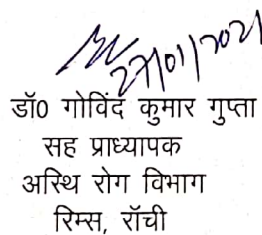 27/01/2021
डॉ0 गोविंद कुमार गुप्ता
सह प्राध्यापक
अस्थि रोग विभाग
रिम्स, राँची